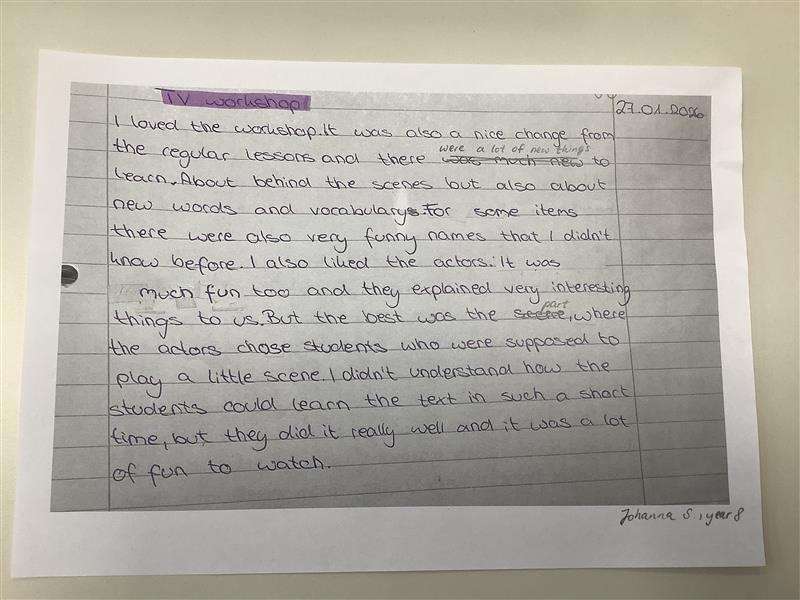 TV workshop
27.01.2026
I loved the workshop. It was also a nice change from
were a lot of new things
the regular lessons and there was much new to
learn. About behind the scenes but also about
new words and vocabulary. For some items
there were also very funny names that I didn't
know before. I also liked the actors. It was
much fun too and they explained very interesting
part
things to us. But the best was the scene, where
the actors chose students who were supposed to
play a little scene. I didn't understand how the
students could learn the text in such a short
time, but they did it really well and it was a lot
of fun to watch.
Johanna S., year 8